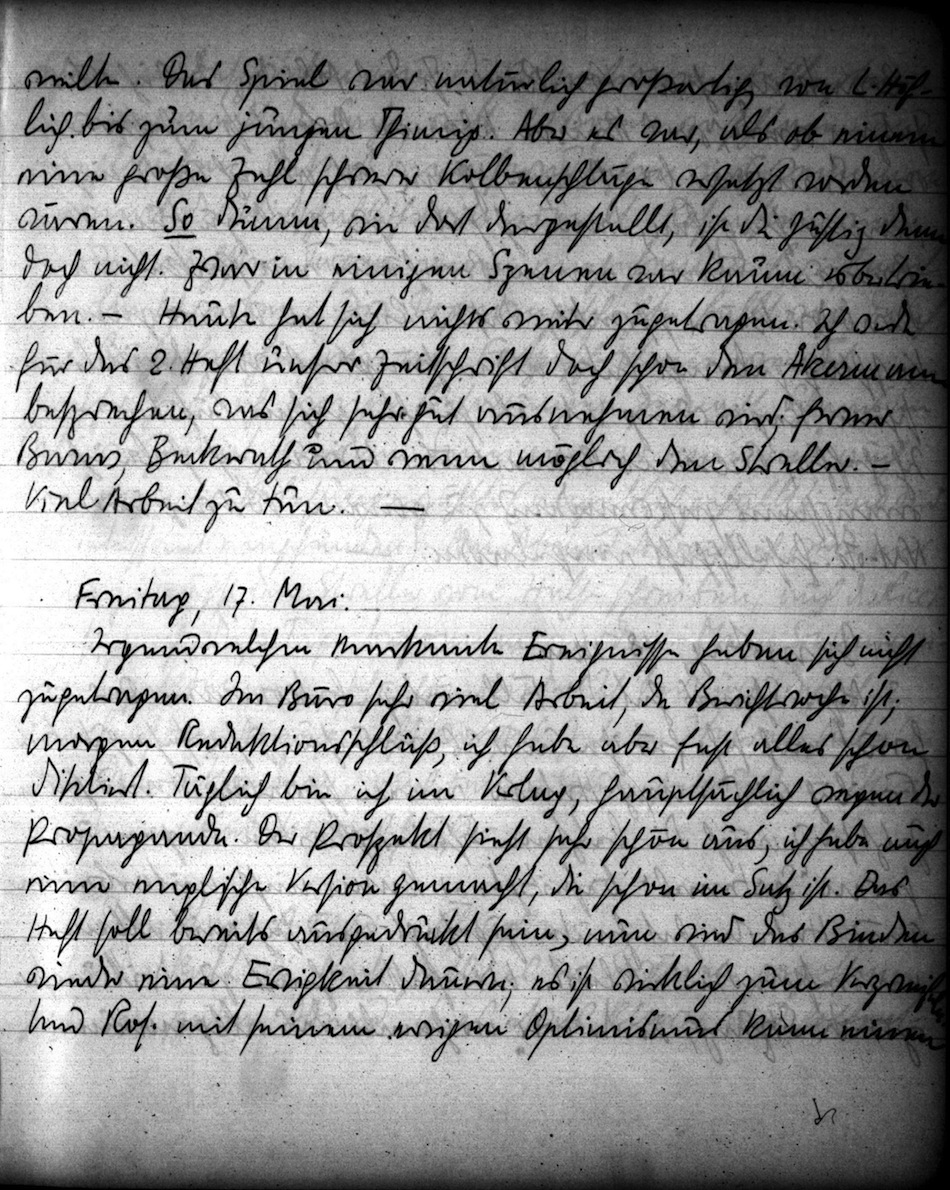 wollte. Das Spiel war natürlich großartig, von L. Höf-
lich bis zum jungen Thimig. Aber es war, als ob einem
eine große Zahl schwerer Kolbenschläge versetzt worden
wären. So dünn, wie dort dargestellt, ist die geistig denn
doch nicht. Zwar in einigen Szenen war kaum übertrie-
ben. – Heute hat sich nichts weiter zugetragen. Ich werde
für das 2. Heft unserer Zeitschrift doch schon den Akerman
besprechen, was sich sehr gut ausnehmen wird; ferner
Burns, Beckerath und wenn möglich den Stroller. –
Viel Arbeit zu tun. —
Freitag, 17. Mai.
Irgendwelchen markante Ereignisse haben sich nicht
zugetragen. Im Büro sehr viel Arbeit, da Berichtswoche ist;
morgen Redaktionsschluß, ich habe aber fast alles schon
diktiert. Täglich bin ich im Verlag, hauptsächlich wegen der
Propaganda. Der Prospekt sieht sehr schön aus, ich habe auch
eine englische Version gemacht, die schon im Satz ist. Das
Heft soll bereits ausgedruckt sein, nun wird das Binden
wieder eine Ewigkeit dauern; es ist wirklich zum Verzweifeln
Und Ros. mit seinem ewigen Optimismus kann einen